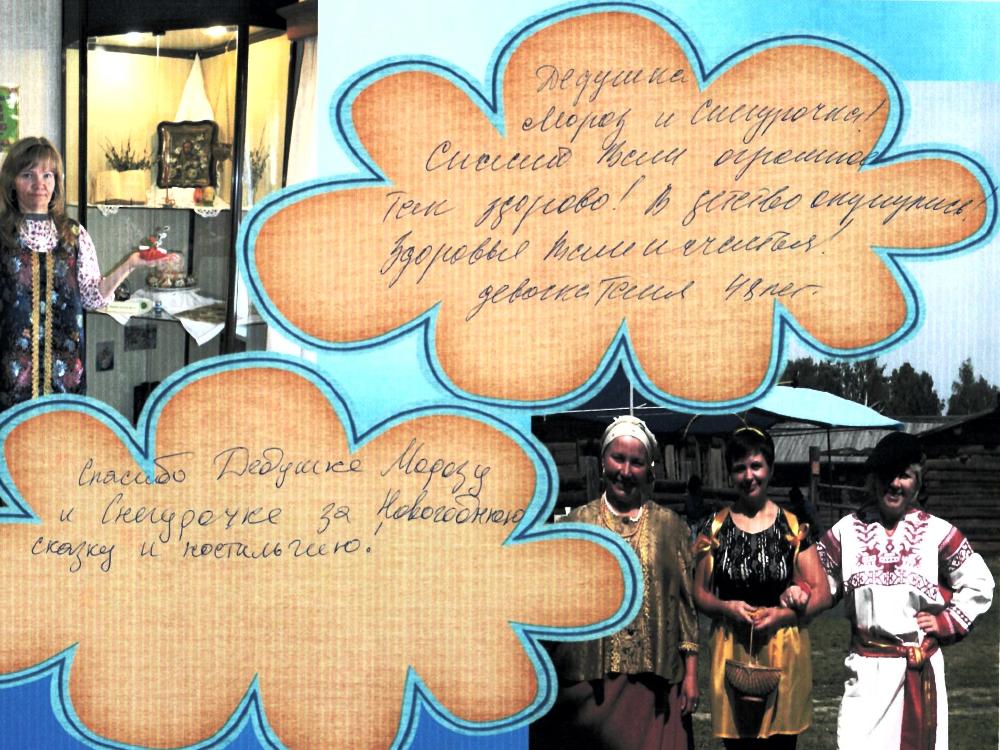 Дедушка
Мороз и Снегурочка!
Спасибо Вам огромное
Так здорово! В детство окунулись!
Здоровья Вам и счастья!
девочка Таня 43 лет.
Спасибо Дедушке Морозу
и Снегурочке за Новогоднюю
сказку и ностальгию.